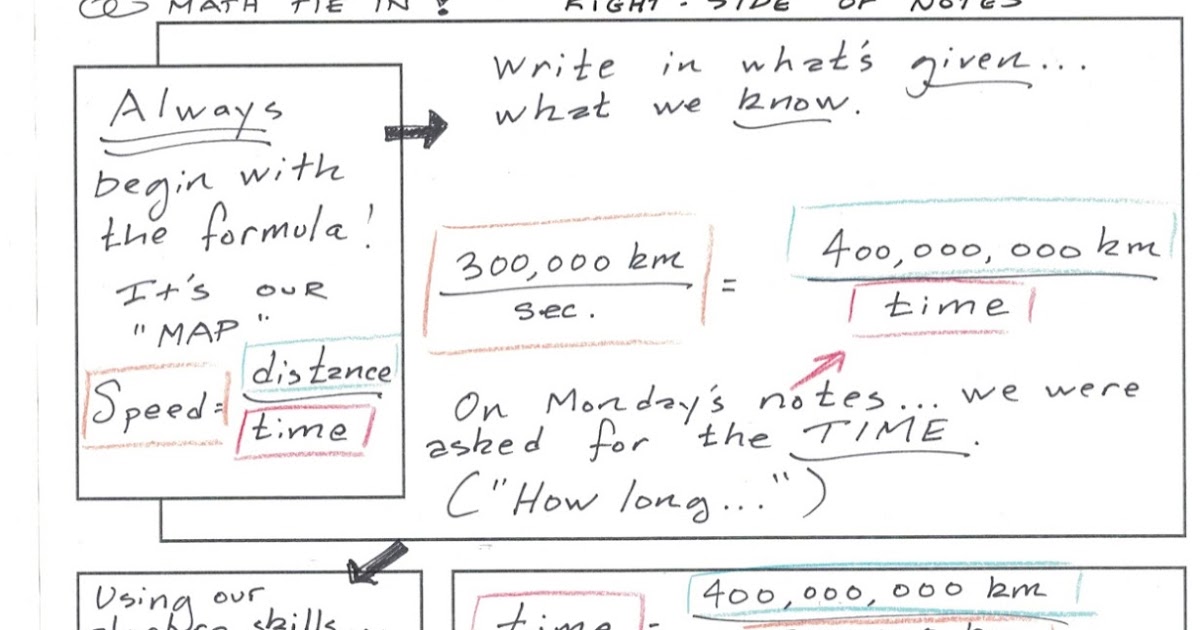 MATH TIE IN! RIGHT-SIDE OF NOTES
Always
begin with
the formula!
It's OUR
"MAP"
Speed = distance
time
Write in what's given...
what we know.
300,000 km
sec.
=
400,000,000 km
time
On Monday's notes... we were
asked for the TIME.
("How long...")
Using our
skills...
time = 400,000,000 km